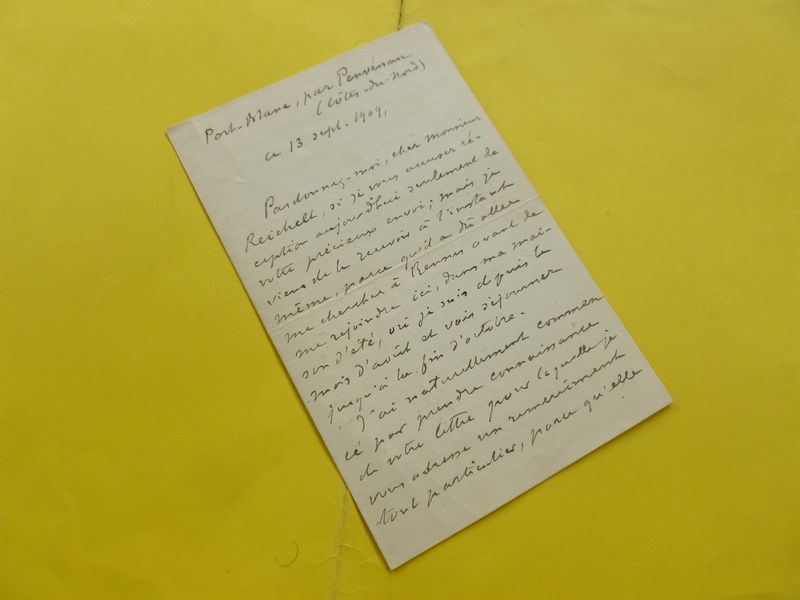 Port-Blanc, par Penvénan
(Côtes-du-Nord)
ce 13 sept. 1909,
Pardonnez-moi, cher Monsieur
Reichelt, si je vous accuse ré-
ception aujourd'hui seulement de
votre précieux envoi; mais je
viens de le recevoir à l'instant
même, parce qu'il a dû aller
me chercher à Rennes avant de
me rejoindre ici, dans ma mai-
son d'été, où je suis depuis le
mois d'août et vais séjourner
jusqu'à la fin d'octobre.
J'ai naturellement commen
cé par prendre connaissance
de votre lettre pour laquelle je
vous adresse un remerciement
tout particulier, parce qu'elle